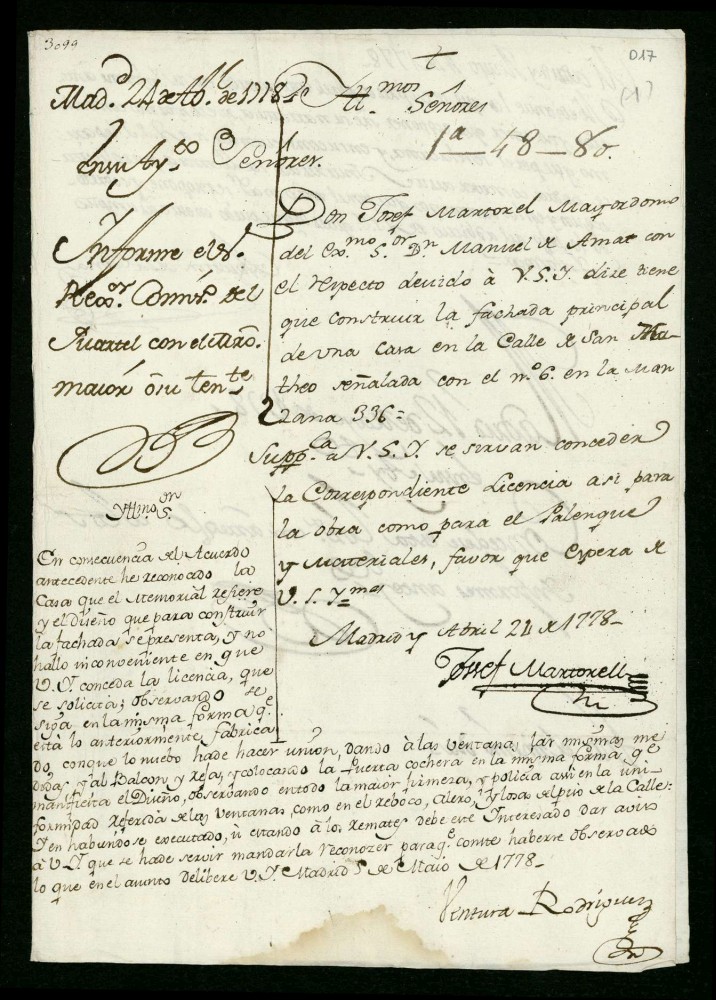 3099
D17
(1)
+
Yll.mos Señores
1a_48_80.
Mad.d 24 de Ab.l de 1778
en su Ay.to
Señores.
Informe el S.r
Rex.or Comis.o del
Quartel con el Mro.
maior ô su ten.te
Don Josef Martorel Mayordomo
del Ex.mo S.or D.n Manuel de Amat con
el respecto devido à V.S.I. dize tiene
que construir la fachada principal
de vna Casa en la Calle de San Ma-
theo señalada con el n.º 6. en la Man
zana 336=
Supp.ca a V.S.Y. se sirvan conceder
la Correspondiente Licencia asi para
la obra como para el Palenque
y Materiales, favor que espera de
V.S.Y.mas
Madrid y Abril 24 de 1778_
Josef Martorell
Yllmo. S.or
En consecuencia del Acuerdo
antecedente he reconocido la
Casa que el Memorial refiere
y el diseño que para construir
la fachada se presenta, y no
hallo inconveniente en que
V.Y. conceda la licencia, que
se solicita; observando se
siga en la misma forma q.e
està lo anteriormente fabrica
do, con que lo nuebo hade hacer union, dando à las ventanas las mismas me
didas y al Balcon, y Reja, y colocando la puerta cochera en la misma forma q.e
manifiesta el Diseño, observando en todo la maior firmeza, y policia asi en la uni-
formidad referida de las ventanas, como en el reboco, Alero, y losa al pie de la Calle:
Y en habiendose executado, ù estando à los remates debe este Interesado dar aviso
à V.Y. que se hade servir mandarla reconozer para q.e conste haberse observado
lo que en el asunto delibere V.Y. Madrid 5 de Maio de 1778_
Ventura Rodriguez